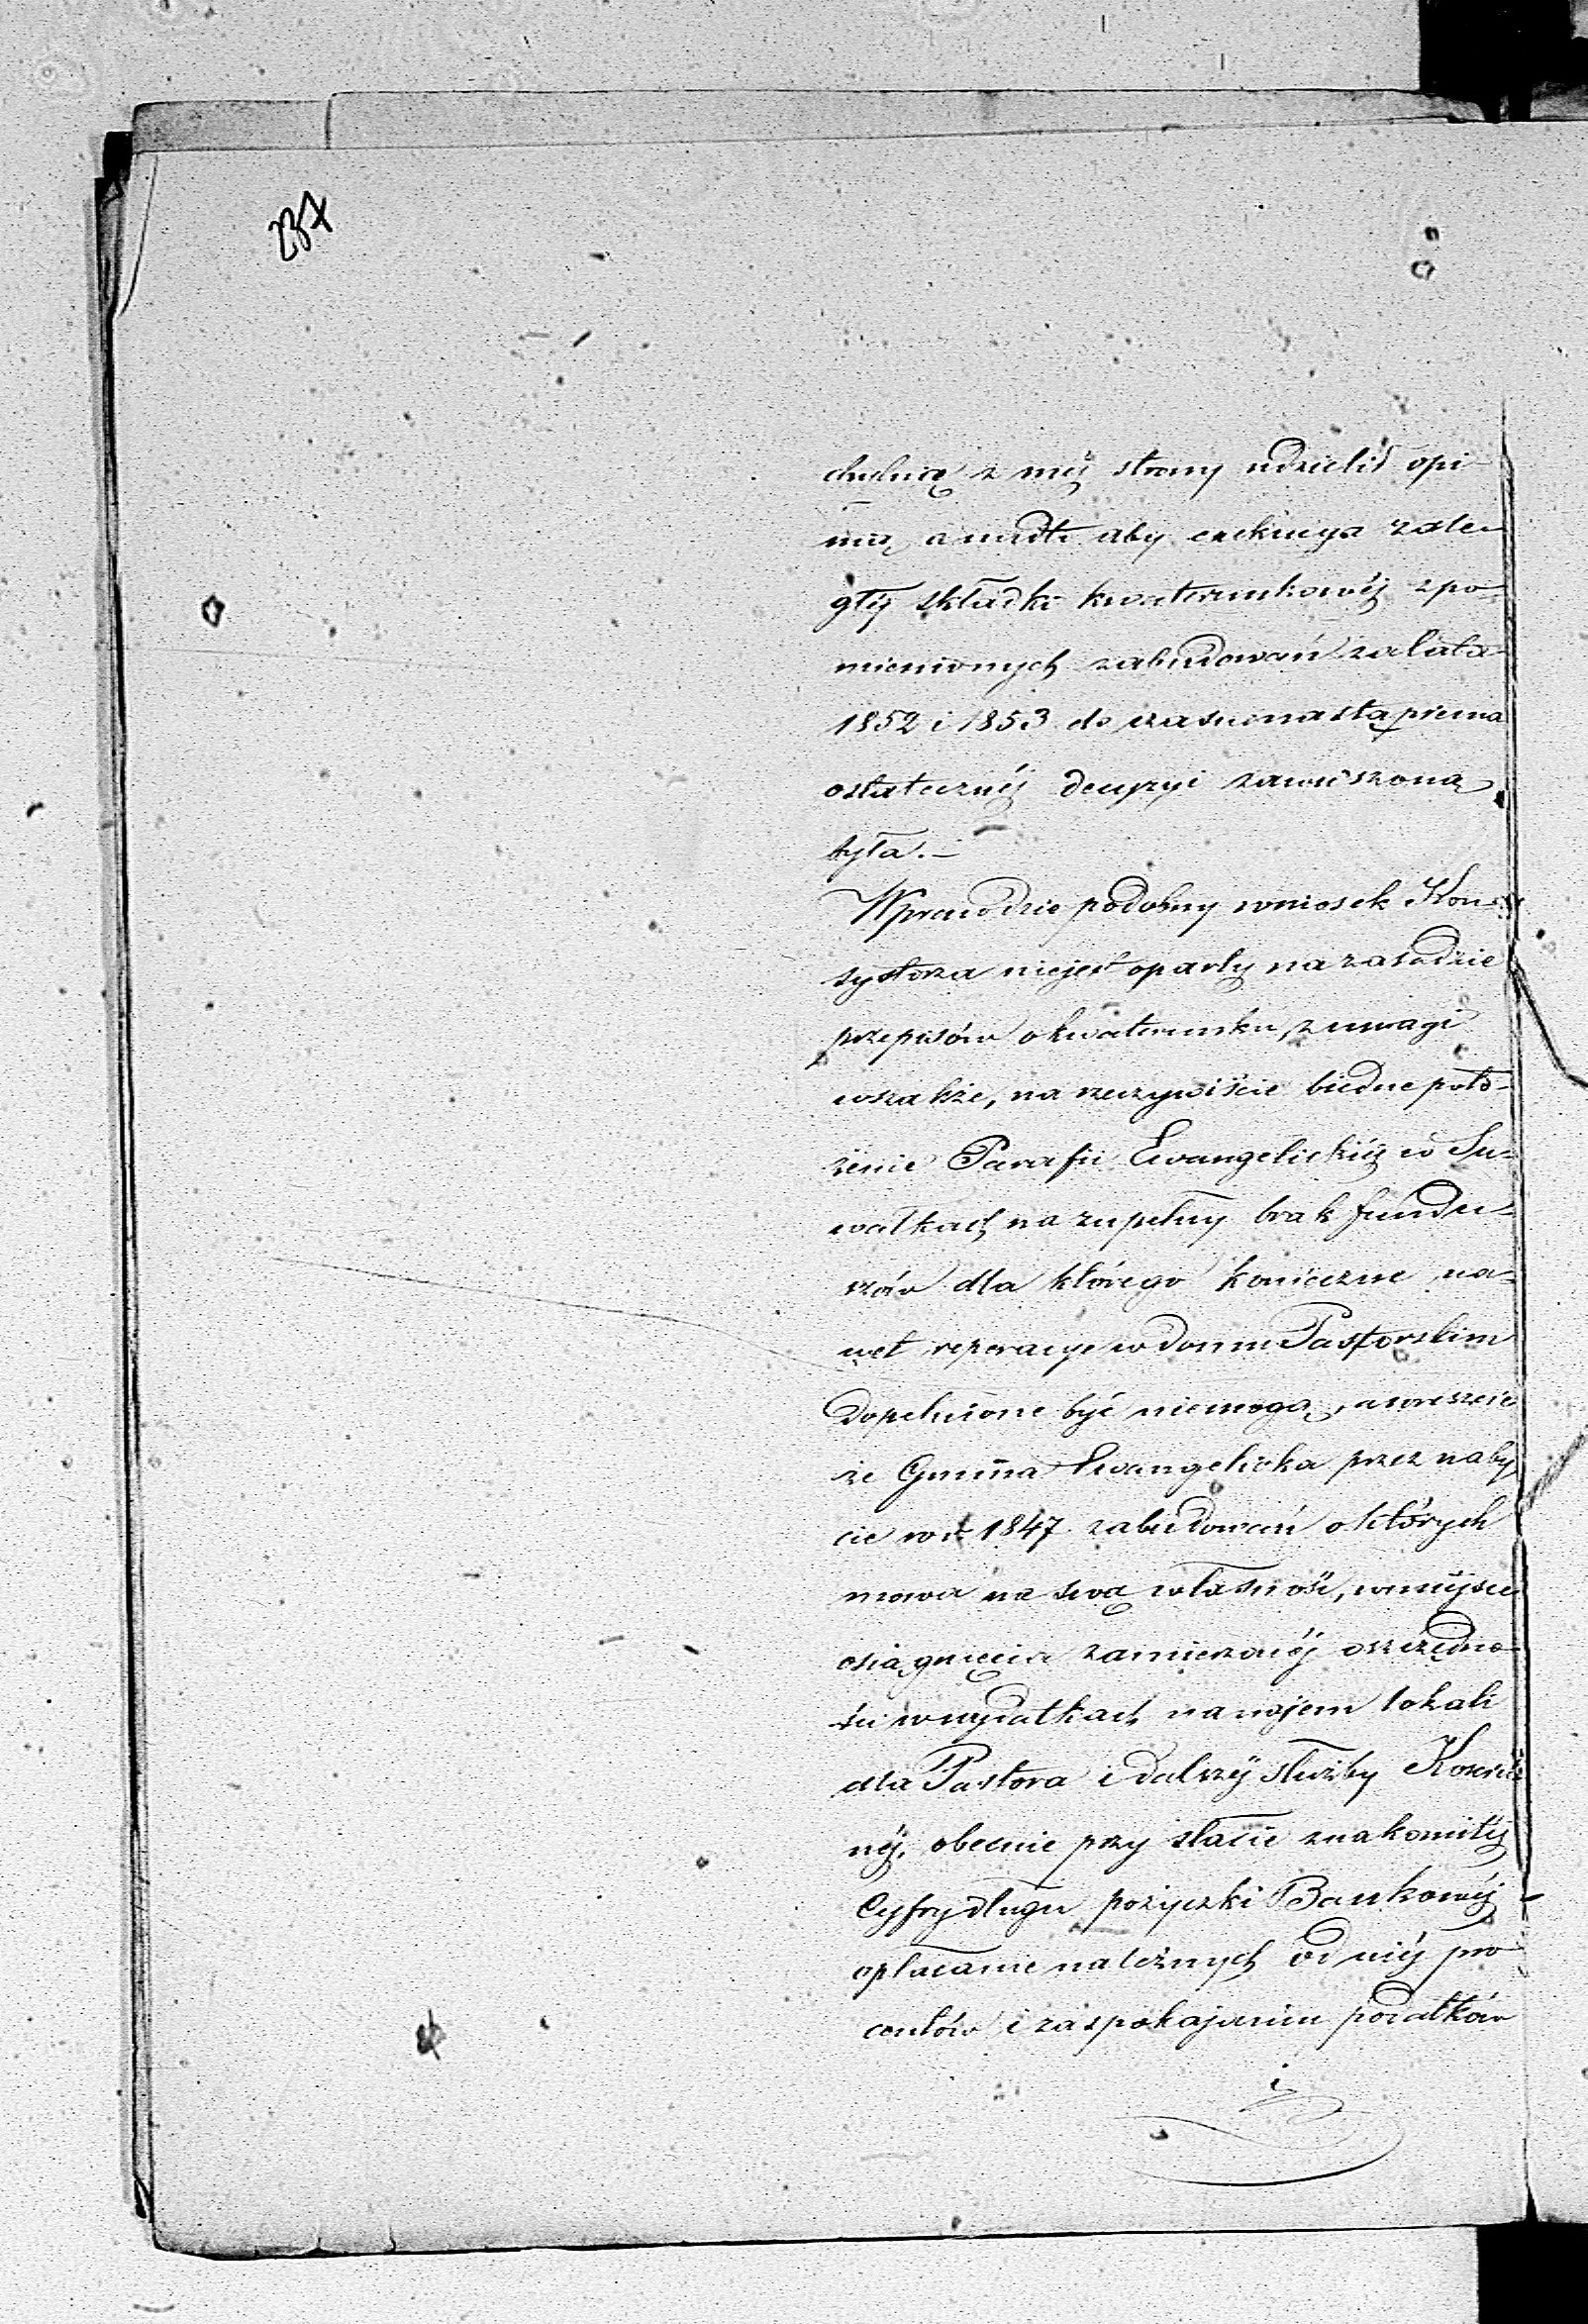 237
chylnie z méj strony udzielić opi-
nią, a nadto aby exekucya zale-
głéj składki kwaterunkowéj z po-
mienionych zabudowań za lata
1852 i 1853 do czasu nastąpienia
ostatecznéj decyzyi zawieszoną
była.-
Wprawdzie podobny wniosek Kon-
systorza niejest oparty na zasadzie
przepisów o kwaterunku, z uwagi
wszakże, na rzeczywiście biedne poło-
żenie Parafii Ewangelickiéj w Su-
wałkach, na zupełny brak fundu-
szów dla którego konieczne na-
wet reperacye w domu Pastorskim
dopełnione być niemogą, a wreszcie
że Gmina Ewangelicka przez naby
cie w r. 1847 zabudowań o których
mowa na swą własność, w miejsce
osiągnięcia zamierzonéj oszczędno-
ści w wydatkach na najem lokali
dla Pastora i dalszéj służby Kościel
néj, obecnie przy stacie znakomitéj
Cyfry długu pożyczki Bankowéj
opłacanie należnych od niéj pro
centów i zaspokajaniu podatków
i